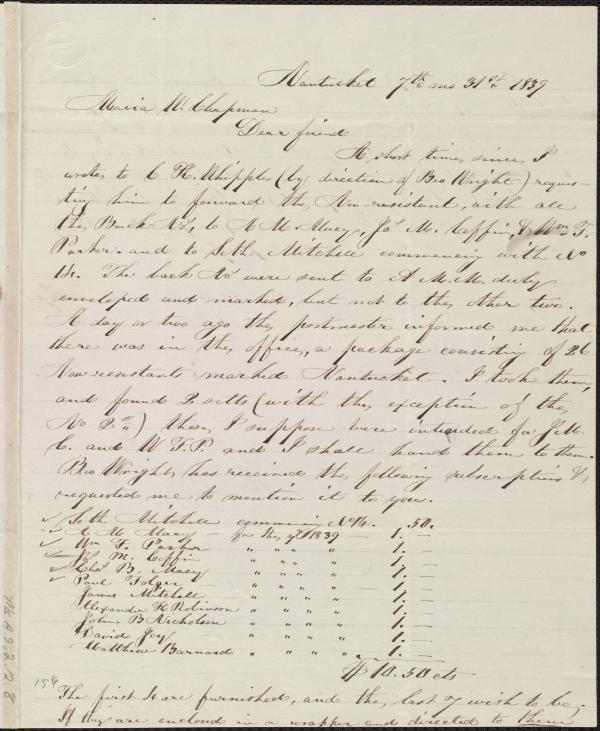 Nantucket 7th mo 31st 1839
Maria W. Chapman
Dear friend
A short time since I
wrote to C K. Whipple (by direction of Bro Wright) reques-
ting him to forward the Non-resistant, with all
the Back Nos, to A M. Macy, Jas M. Coffin, & Wm T.
Parker - and to Seth Mitchell commencing with No
14. The back Nos were sent to A M. M. duly
enveloped and marked, but not to the other two.
A day or two ago the postmaster informed me that
there was in the office, a package consisting of 26
Non-resistants marked Nantucket. I took them,
and found 2 setts (with the exception of the
No 2) these I suppose were intended for J. M.
C. and W T. P. and I shall hand them to them.
Bro Wright, has received the following subscriptions &
requested me to mention it to you.
Seth Mitchell commencing No 14. .50.
A M Macy - for the yr 1839 — 1. —
Wm T. Parker " " " " — 1. —
Jas M. Coffin " " " " 1. —
Chas B. Macy " " " " 1. —
Paul Folger - " " " " — 1. —
James Mitchell " " " " 1. —
Alexander Robinson " " " " 1. —
John B Nicholson " " " " 1. —
David Joy " " " " 1. —
Matthew Barnard " " " " 1. —
$10.50 cts
The first 4 are furnished, and the last 7 wish to be.
If they are enclosed in a wrapper and directed to them
154